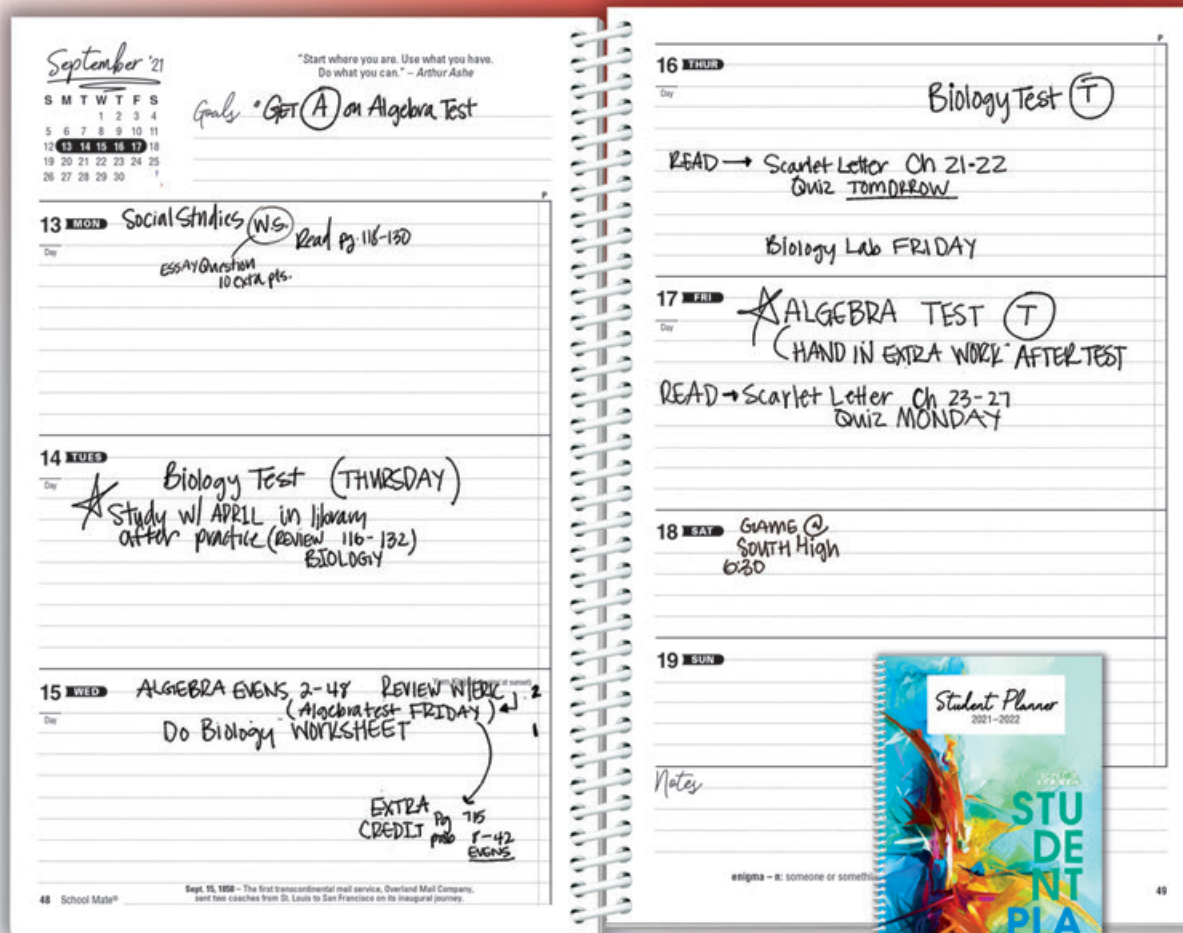 September '21
S M T W T F S
1 2 3 4
5 6 7 8 9 10 11
12 13 14 15 16 17 18
19 20 21 22 23 24 25
26 27 28 29 30
"Start where you are. Use what you have.
Do what you can." – Arthur Ashe
Goals "GET A on Algebra Test
P
13 MON Social Studies W.S. Read pg. 116-130
Day
ESSAY Question
10 extra pts.
14 TUES
Day
Biology Test (THURSDAY)
Study W/ APRIL in library
after practice (REVIEW 116-132)
BIOLOGY
15 WED ALGEBRA EVENS 2-48 REVIEW W/ERIC 2
at sunset)
Day
(Algebra test FRIDAY)
Do Biology WORKSHEET 1
EXTRA Pg 715
CREDIT prob 8-42
EVENS
Sept. 15, 1858 – The first transcontinental mail service, Overland Mail Company,
sent two coaches from St. Louis to San Francisco on its inaugural journey.
48 School Mate®
P
16 THUR
Day
Biology Test T
READ → Scarlet Letter Ch 21-22
Quiz TOMORROW
Biology Lab FRIDAY
17 FRI ALGEBRA TEST T
Day
(HAND IN EXTRA WORK" AFTER TEST
READ → Scarlet Letter Ch 23-27
Quiz MONDAY
18 SAT GAME @
SOUTH High
6:30
19 SUN
Notes
enigma – n: someone or
49
Student Planner
2021–2022
STU
DE
NT
PLA